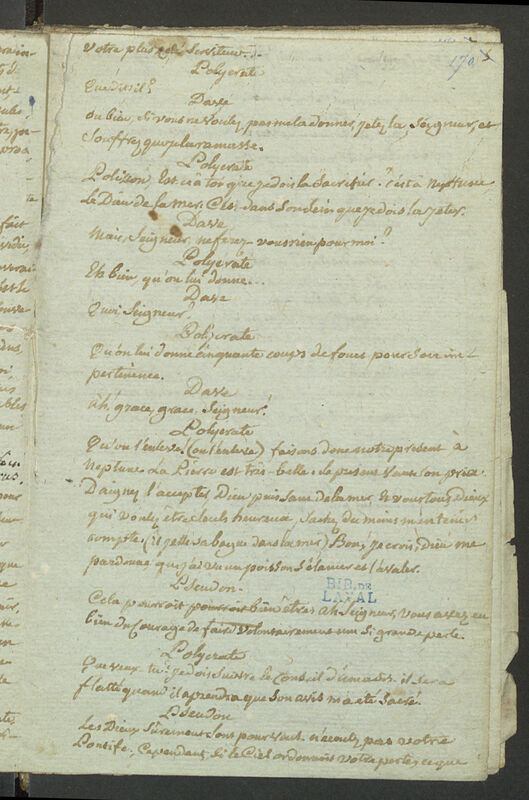 170
votre plus zélé serviteur.
Polycrate
Que dit-il?
Dave
ou bien, si vous ne voulez pas me la donner, jetez la, Seigneur, et
souffrez que je la ramasse.
Polycrate
Polisson, Est-ce à toi que je dois la sacrifier? c'est à Neptune
Le Dieu de la mer. C'est dans son sein que je dois la jeter.
Dave
Mais, Seigneur, ne ferez-vous rien pour moi?
Polycrate
Eh bien, qu'on lui donne...
Dave
Quoi Seigneur?
Polycrate
Qu'on lui donne cinquante coups de fouet pour son im-
pertinence.
Dave
Ah! grace, grace, Seigneur!
Polycrate
Qu'on l'enleve. (on l'enleve) faisons donc notre present à
Neptune. La Pierre est très belle. le present vaut son prix.
Daignez l'accepter, Dieu puissant de la mer, Et vous tous, Dieux
qui voulez être seuls heureux, sachez du moins m'en tenir
compte. (il jette sa bague dans la mer) Bon! je crois, Dieu me
pardonne que j'ai vu un poisson s'élancer et l'avaler.
Pseudon.
BIB. DE
LAVAL
Cela pourroit pourroit bien être. ah Seigneur, vous avez eu
bien du Courage de faire volontairement une si grande perte.
Polycrate
Que veux tu? je dois suivre le Conseil d'amasis. il sera
flatté quand il aprendra que son avis m'a été sacré.
Pseudon
Les Dieux surement sont pour vous. n'écoutez pas votre
Pontife. Cependant, si le Ciel ordonnoit votre perte, ce que